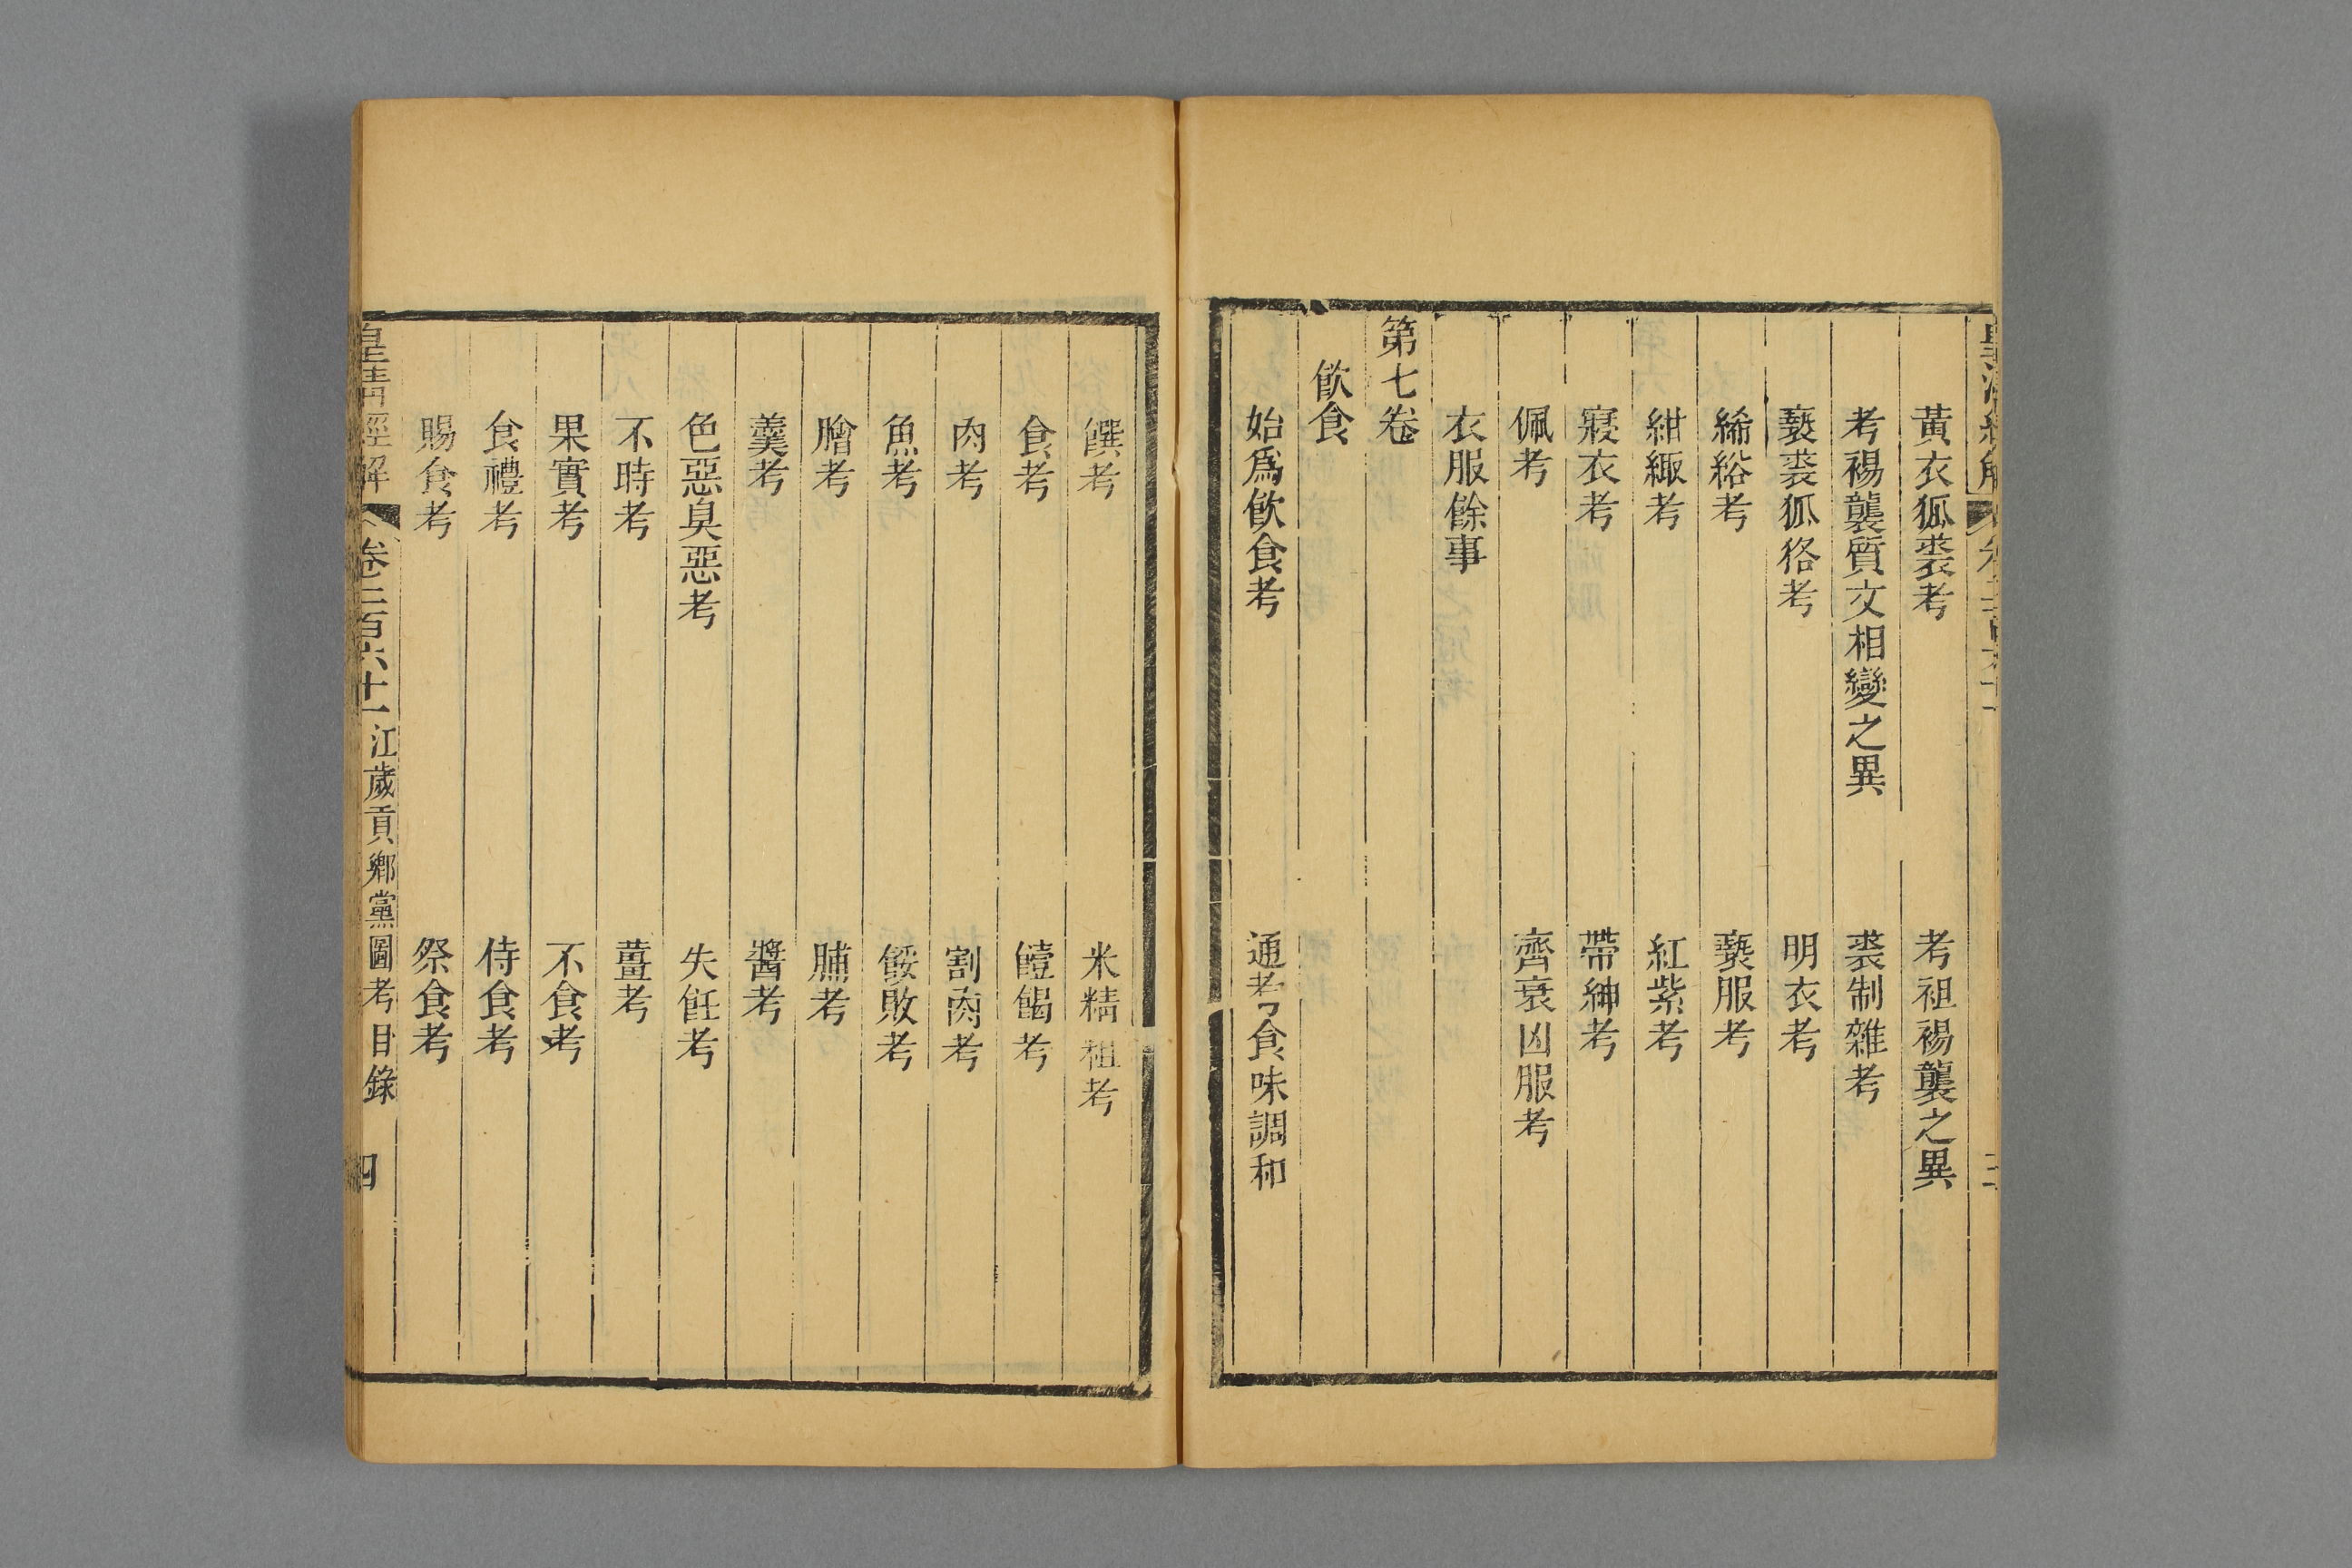 黃衣狐裘考　考袒裼襲之異
考裼襲質文相變之異　裘制雜考
褻裘狐狢考　明衣考
絺綌考　褻服考
紺緅考　紅紫考
寢衣考　帶紳考
佩考　齊衰凶服考
衣服餘事
第七卷
飲食
始爲飲食考　通考食味調和
饌考　米精粗考
食考　饐餲考
肉考　割肉考
魚考　餒敗考
膾考　脯考
羹考　醬考
色惡臭惡考　失飪考
不時考　薑考
果實考　不食考
食禮考　侍食考
賜食考　祭食考
皇清經解　卷二百六十一　江歲貢鄉黨圖考目錄　四